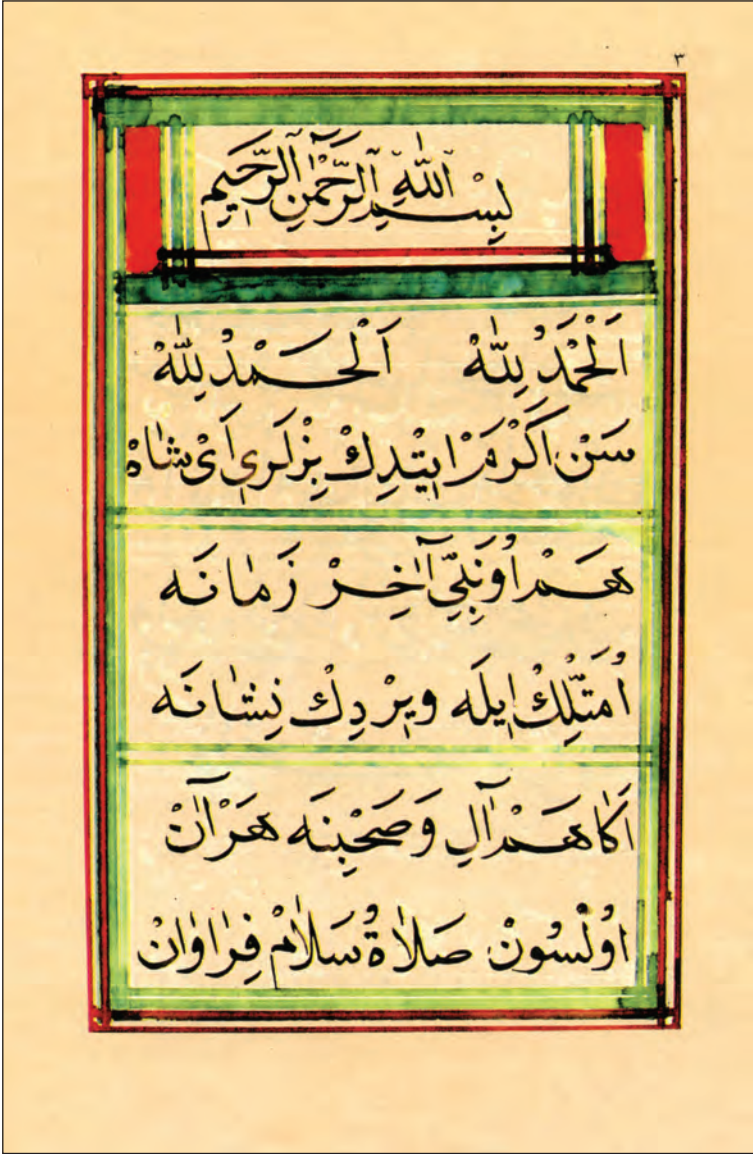 ٣
بِسْمِ اللّٰهِ الرَّحْمٰنِ الرَّحِيمِ
اَلْحَمْدُ لِلّٰهْ اَلْحَمْدُ لِلّٰهْ
سَنْ اَكْرَمْ اِيتْدِكْ بِزْلَرِى اَىْ شَاهْ
هَمْ اُو نَبِىِّ آخِرْ زَمَانَه
اُمَّتْلِكْ اِيلَه وِيرْدِكْ نِشَانَه
اَكَا هَمْ آلِ وَصَحْبِنَه هَرْ آنْ
اُولْسُونْ صَلَاةُ سَلَامْ فِرَاوَانْ